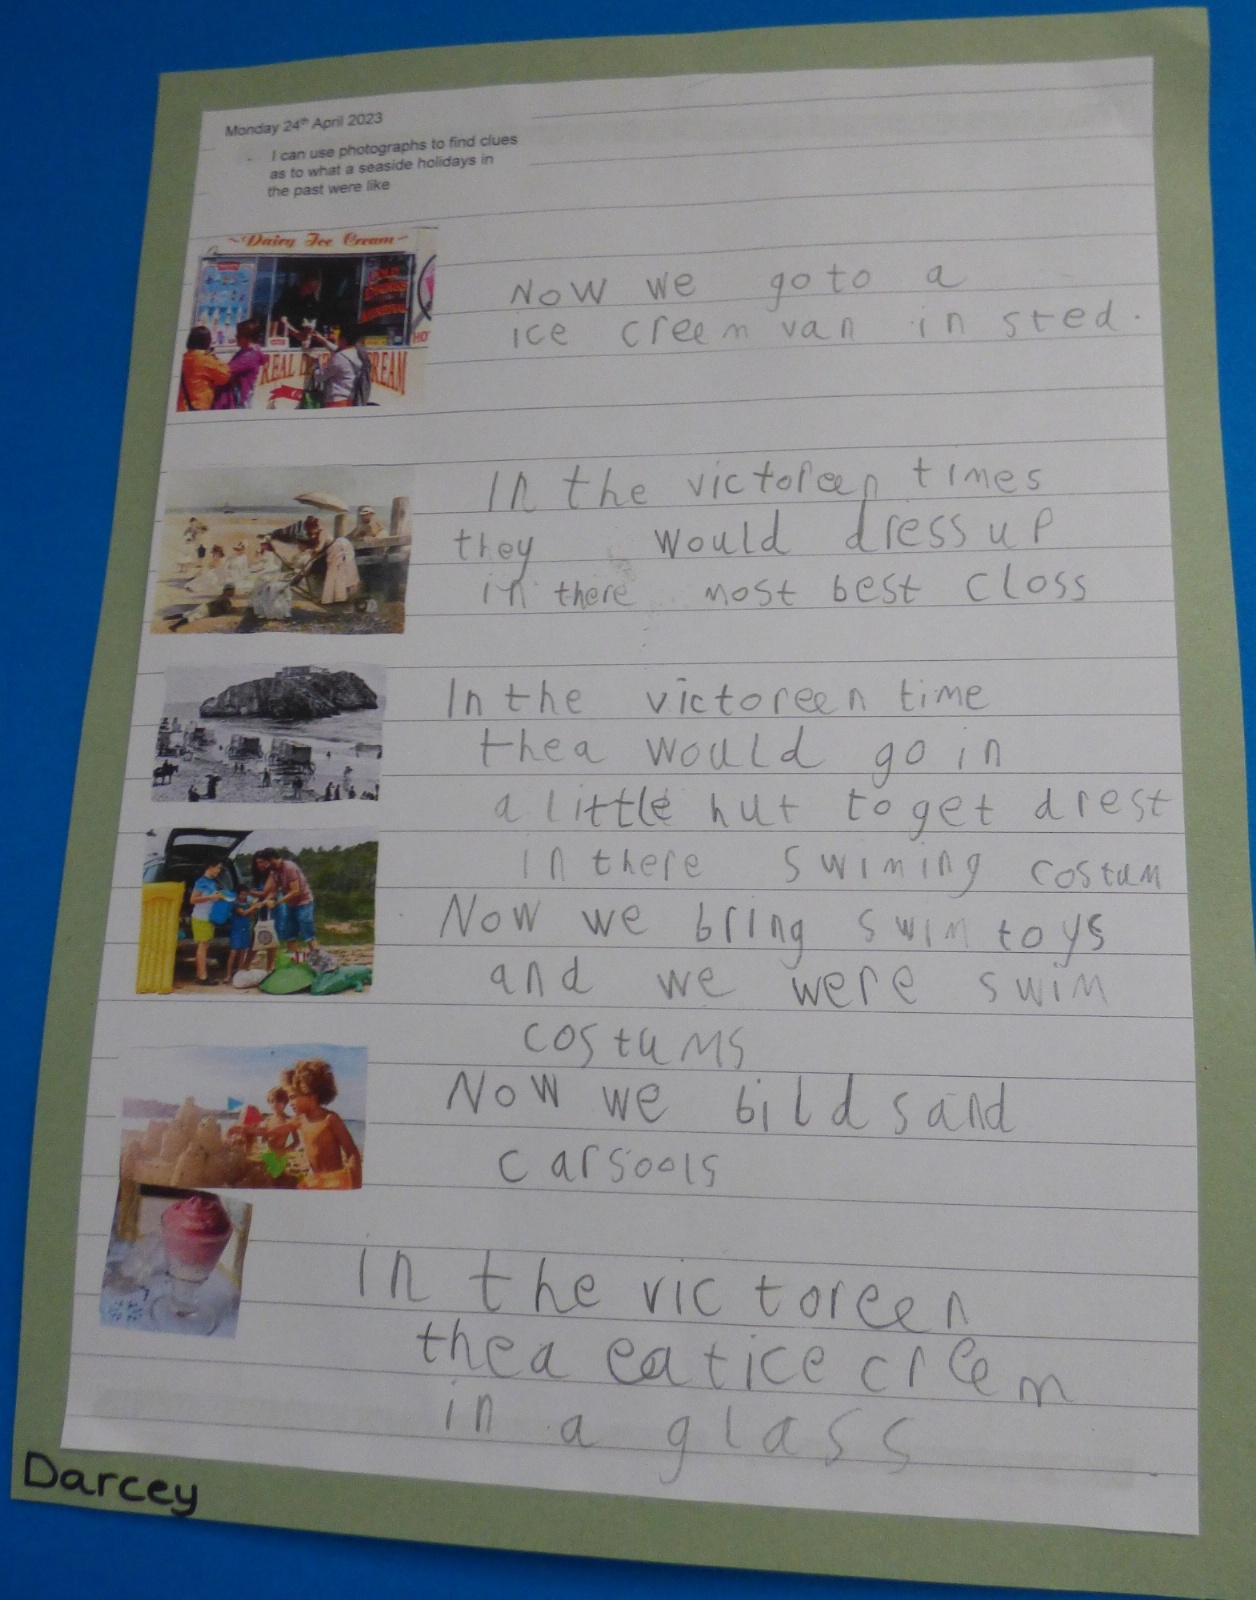 Monday 24th April 2023
I can use photographs to find clues
as to what a seaside holidays in
the past were like
~Dairy Ice Cream~
REAL CREAM
Now we go to a
ice creem van in sted.
In the victoreen times
they would dress up
in there most best closs
In the victoreen time
thea would go in
a little hut to get drest
in there swiming costum
Now we bring swim toys
and we were swim
costums
Now we bild sand
carsools
In the victoreen
thea eat ice creem
in a glass
Darcey